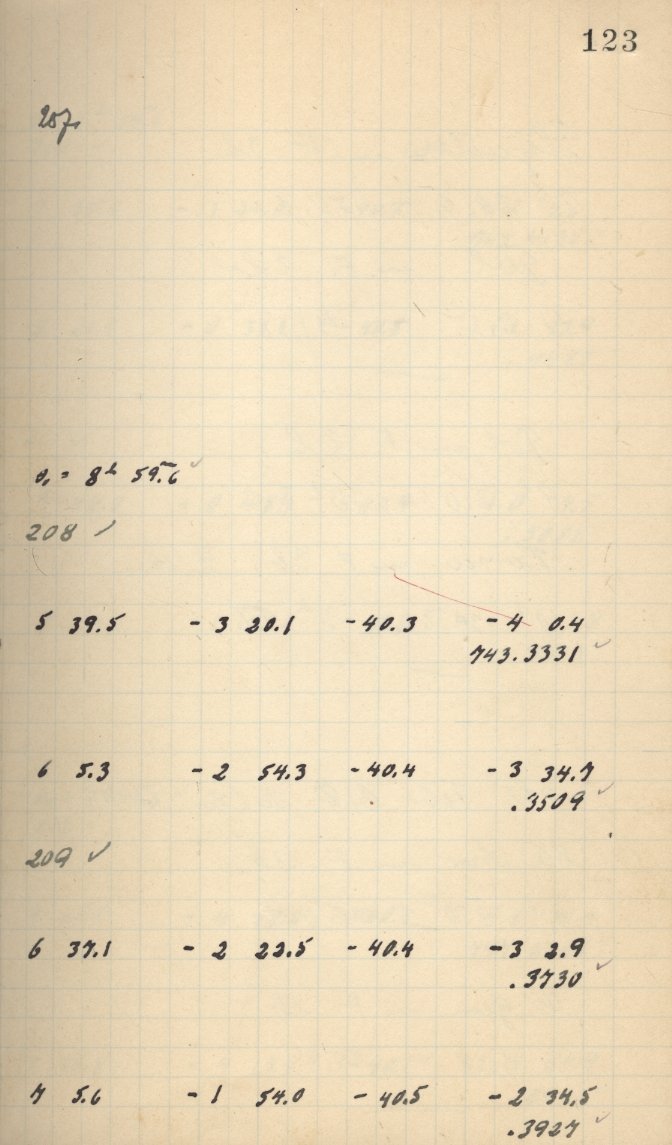 123
207.
θ₁ = 8ʰ 59.ᵐ6 ✓
208 ✓
5 39.5 - 3 20.1 - 40.3 - 4 0.4
743.3331 ✓
6 5.3 - 2 54.3 - 40.4 - 3 34.7
.3509 ✓
209 ✓
6 37.1 - 2 22.5 - 40.4 - 3 2.9
.3730 ✓
7 5.6 - 1 54.0 - 40.5 - 2 34.5
.3927 ✓